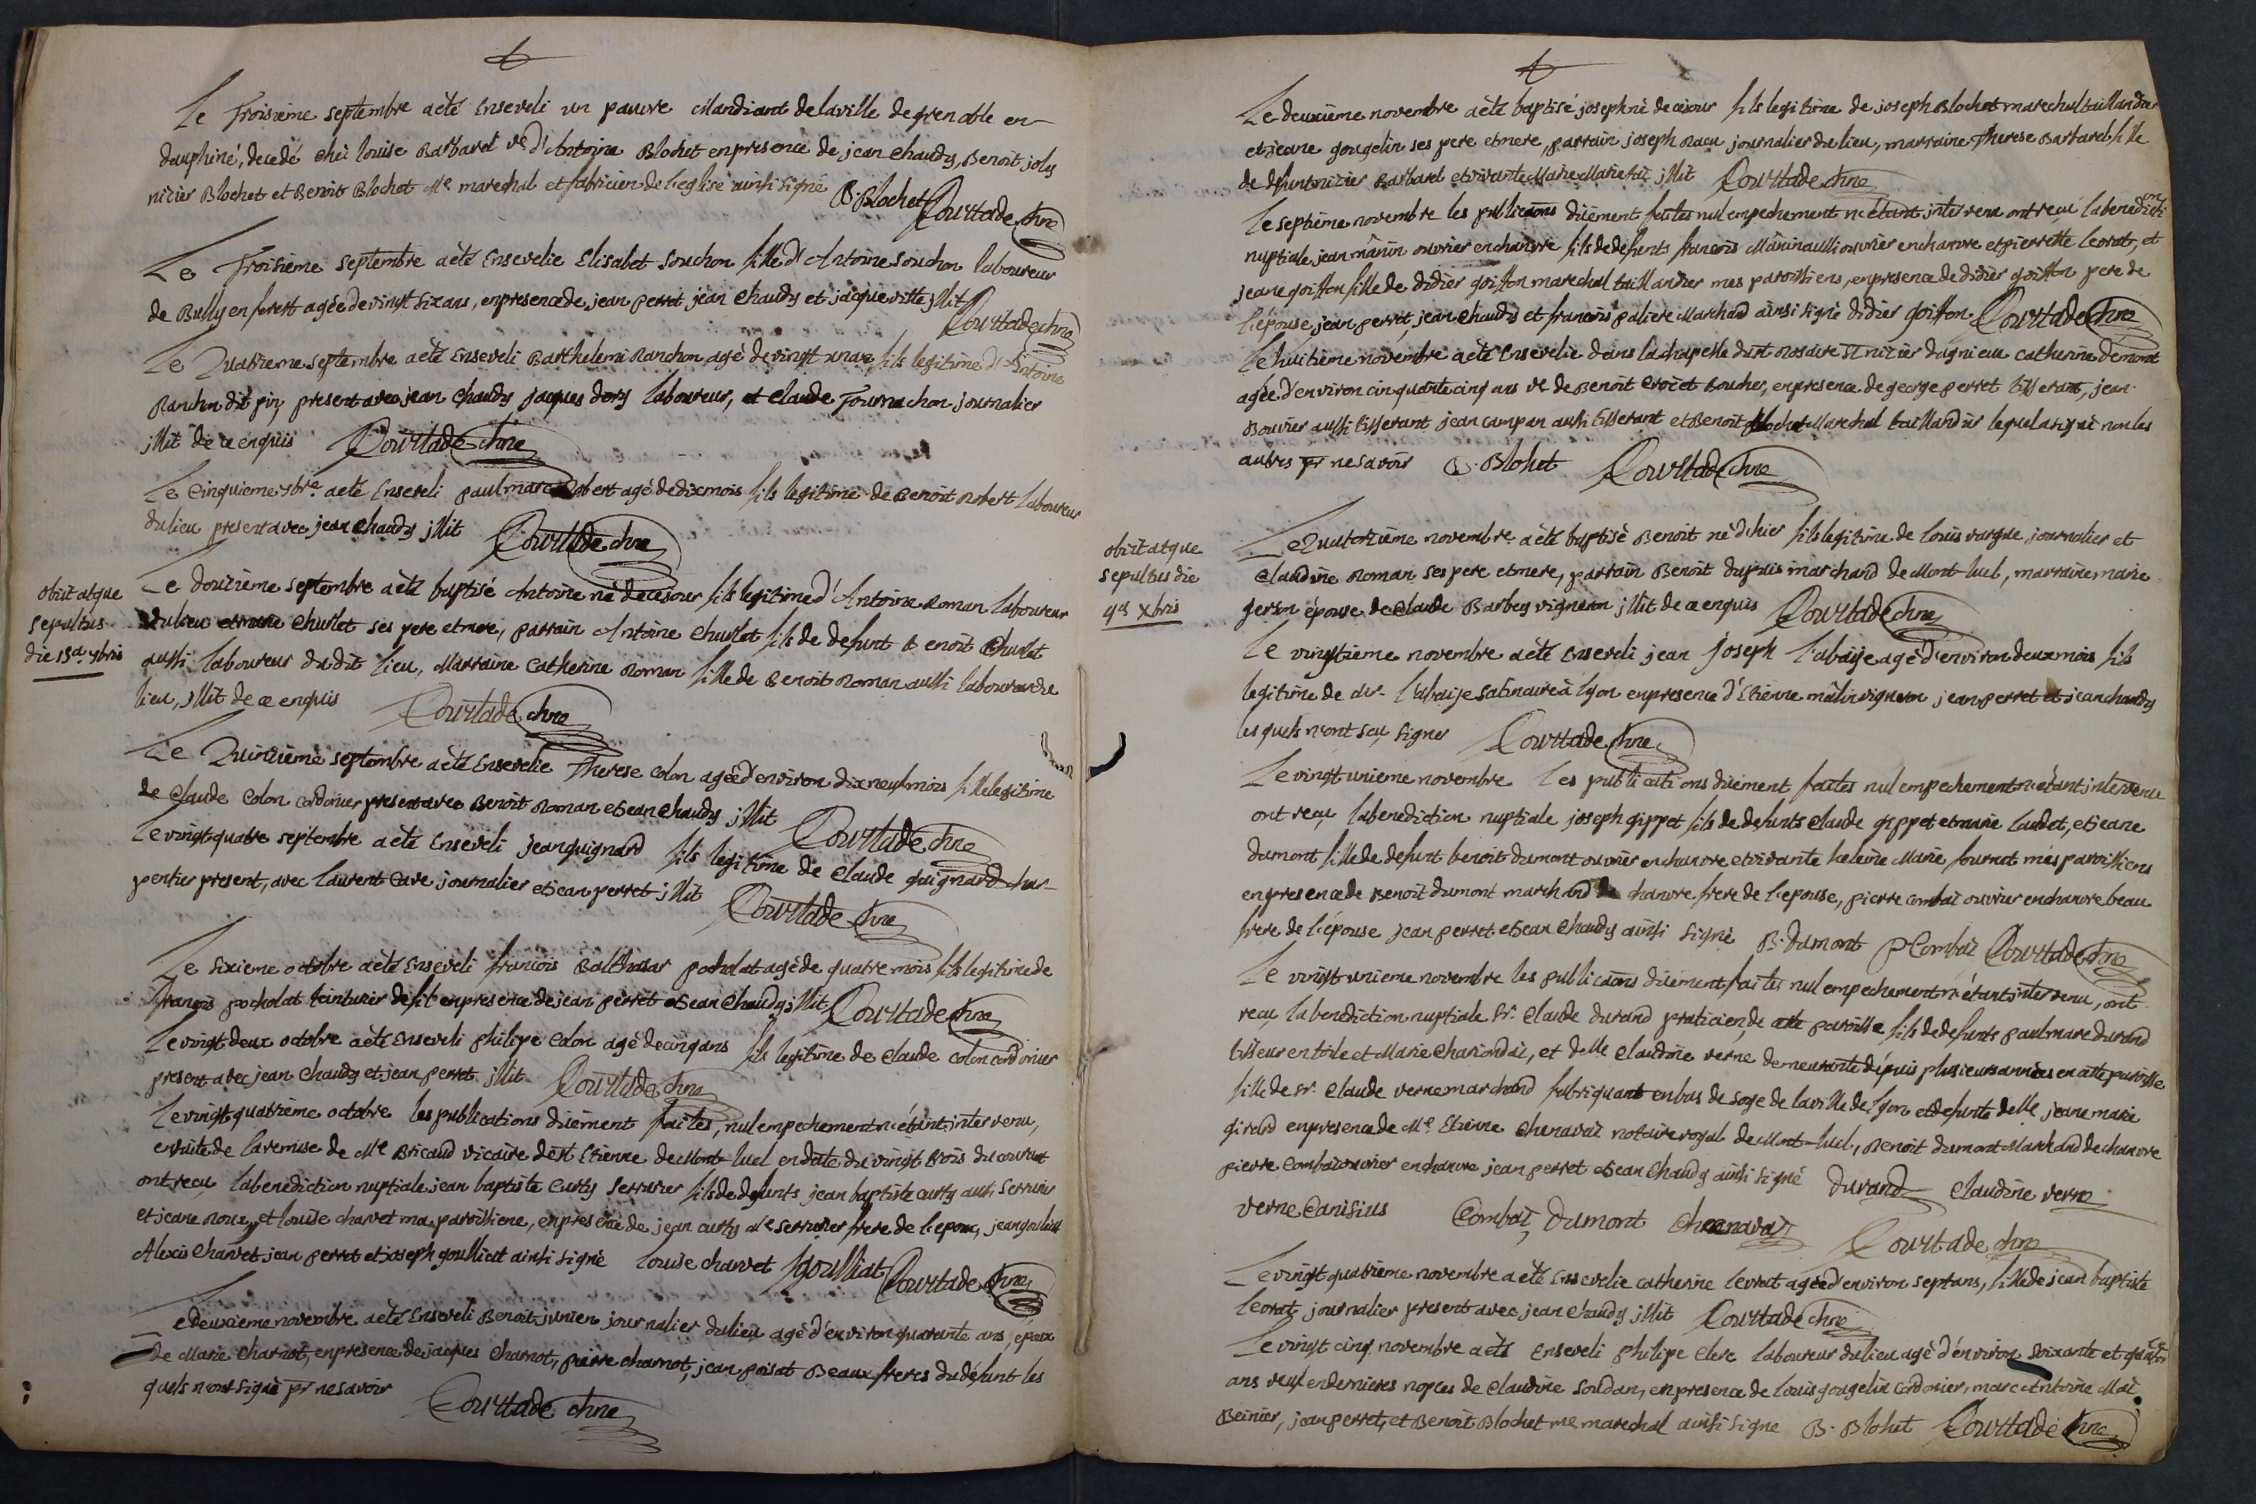 Le Troisième septembre a èté Enseveli un pauvre Mandiant de la ville de grenoble en
dauphiné, decedé chéz louise Barbaret ve d'Antoine Blochet en presence de jean chaudy, Benoit joly
nizier Blochet et Benoit Blochet Me marechal et fabricien de l'eglise ainsi signé B. Blochet Courtade chne
Le Troisième septembre a èté Ensevelie Elisabet souchon fille d'Antoine souchon laboureur
de Bully en forest agée de vingt six ans, en presence de jean perret, jean chaudy et jacque vitte jllit
Courtade chne
Le Quatrieme septembre a èté Enseveli Barthelemi Ranchon agé de vingt un an fils legitime d'Antoine
Ranchon dit pin present avec jean chaudy jaques dory laboureur, et claude Fournachon journalier
jllit de ce enquis Courtade chne
Le Cinquieme 7bre a èté Enseveli paul marc Robert agé de dix mois fils legitime de Benoit Robert laboureur
du lieu present avec jean chaudy jllit Courtade chne
obiit atque
sepultus
die 13a 7bris
Le douzième septembre a èté baptisé Antoine né de ce jour fils legitime d'Antoine Roman laboureur
du lieu et marie churlet ses pere et mere, parrain Antoine churlet fils de defunt Benoit churlet
aussi laboureur du dit lieu, Marraine Catherine Roman fille de Benoit Roman aussi laboureur du
lieu, jllit de ce enquis Courtade chne
Le Quinzième septembre a èté Ensevelie Therese colon agée d'environ dix neuf mois fille legitime
de claude colon cordonier present avec Benoit Roman et jean chaudy jllit Courtade chne
Le vingt quatre septembre a èté Enseveli jean guignard fils legitime de claude guignard char-
pentier present, avec laurent Cave journalier et jean perret jllit Courtade chne
Le sixieme octobre a èté Enseveli francois Balthasar pocholat agé de quatre mois fils legitime de
françois pocholat teinturier de fil en presence de jean perret et jean chaudy jllit Courtade chne
Le vingt deux octobre a èté Enseveli philipe Colon agé de cinq ans fils legitime de claude colon cordonier
present avec jean chaudy et jean perret jllit Courtade chne
Le vingt quatrième octobre les publications dûement faites, nul empechement n'étant intervenu,
ensuite de la remise de Me Bricaud vicaire de st Etienne de Mont-luel en date du vingt trois du courant
ont reçu la benediction nuptiale jean baptiste Curty serrurier fils de defunts jean baptiste curty aussi serrurier
et jeane Roux, et louise charvet ma paroissiene, en presence de jean curty Me serrurier frere de l'epoux, jean goulliat
Alexis Charvet, jean perret et joseph goulliat ainsi signé louise charvet J goulliat Courtade chne
Le deuxieme novembre a èté Enseveli Benoit junien journalier du lieu agé d'environ quarante ans, epoux
de Marie charnot, en presence de jacques charnot, pierre charnot, jean poisat Beaux freres du défunt les
quels n'ont signé pr ne savoir Courtade chne
Le deuxième novembre a èté baptisé joseph né de ce jour fils legitime de joseph Blochet marechal taillandier
et jeane gougelin ses pere et mere, parrain joseph Racu journalier du lieu, marraine Therese Barbaret fille
de defunt nizier Barbaret et vivante Marie jllit Courtade chne
Le septième novembre les publications dûement faites nul empechement n'étant intervenu ont reçu la benediction
nuptiale jean mânin ouvrier en chanvre fils de defunts francois Mânin aussi ouvrier en chanvre et pierrette levrat, et
jeane goiffon fille de didier goiffon marechal taillandier mes paroissiens, en presence de didier goiffon pere de
l'épouse, jean perret, jean chaudy et francois paliere Marchand ainsi signé didier goiffon Courtade chne
Le huitième novembre a èté Ensevelie dans la chapelle du st Rosaire st nizier dagnieu catherine demont
agée d'environ cinquante cinq ans ve de Benoit Croizet Boucher, en presence de george perret tisserant, jean
Bouvier aussi tisserant jean campan aussi tisserant et Benoit Blochet Marechal taillandier lequel a signé non les
autres pr ne savoir B. Blohet Courtade chne
obiit atque
sepultus die
4a Xbris
Le Quatorzième novembre a èté baptisé Benoit né d'hier fils legitime de louis vargue journalier et
Claudine Roman ses pere et mere, parrain Benoit dupuis marchand de Mont-luel, marraine marie
gerson épouse de claude Barbey vigneron jllit de ce enquis Courtade chne
Le vingtième novembre a èté Enseveli jean joseph l'abaije agé d'environ deux mois fils
legitime de Sr l'abaije satinaire à lyon en presence d'Etienne mâlin vigneron jean perret et jean chaudy
les quels n'ont scu signer Courtade chne
Le vingt unieme novembre les publications dûement faites nul empechement n'étant intervenu
ont reçu la benediction nuptiale joseph gippet fils de defunts claude gippet et marie laudet, et jeane
dumont fille de defunt benoit dumont ouvrier en chanvre et vivante heleine Marie fournet més paroissiens
en presence de Benoit dumont marchand de chanvre frere de l'epouse, pierre combaz ouvrier en chanvre beau
frere de l'épouse jean perret et jean chaudy ainsi signé B. dumont P Combaz Courtade chne
Le vingt unieme novembre les publications dûement faites nul empechement n'étant intervenu, ont
reçu la benediction nuptiale Sr. Claude durand praticien de cette paroisse fils de defunts paul marc durand
tisseur en toile et Marie Chariondaz, et delle claudine verne demeurante dépuis plusieurs années en cette paroisse
fille de Sr. Claude verne marchand fabriquant en bas de soye de la ville de lyon et defunte delle jeane marie
girard en presence de Me Etienne chenavaz notaire royal de Mont-luel, Benoit dumont Marchand de chanvre
pierre combaz ouvrier en chanvre jean perret et jean chaudy ainsi signé durand claudine verne
verne Canisius Combaz dumont Chenavaz
Courtade chne
Le vingt quatrieme novembre a èté Ensevelie catherine levrat agée d'environ sept ans, fille de jean baptiste
levrat journalier present avec jean chaudy jllit Courtade chne
Le vingt cinq novembre a èté Enseveli philipe clerc laboureur du lieu agé d'environ soixante et quatorze
ans veuf en dernieres nopces de claudine soudan, en presence de louis gougelin cordonier, marc Antoine Maz
Beinier, jean perret, et Benoit Blochet me marechal ainsi signé B. Blohet Courtade chne